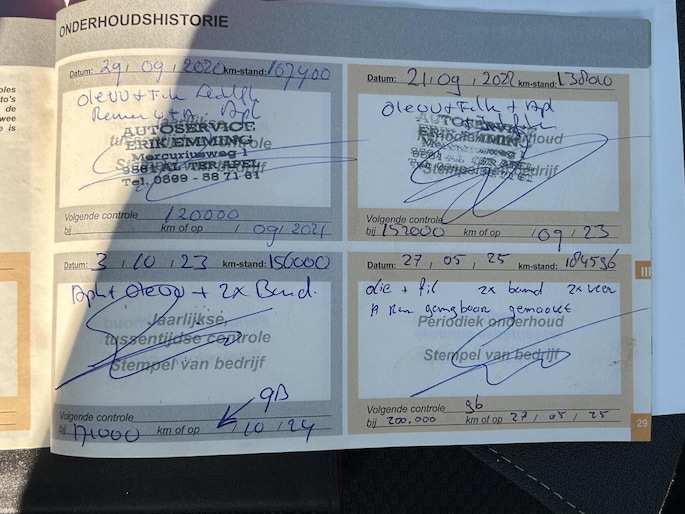 ONDERHOUDSHISTORIE
Datum: 29 / 09 / 2020 km-stand: 107400
OleVV + Filt
Remmen APK
AUTOSERVICE
ERIK EMMING
Mercuriusweg 1
9561 AL TER APEL
Tel. 0599 - 58 71 61
Volgende controle 120000
bij km of op / 09 / 2021
Datum: 21 / 09 / 2022 km-stand: 138000
OleVV + Filt + Apk
AUTOSERVICE
ERIK EMMING
Mercuriusweg 1
9561 AL TER APEL
Periodiek onderhoud
Stempel van bedrijf
Volgende controle
bij 152000 km of op / 09 / 23
Datum: 3 / 10 / 23 km-stand: 156000
Apk + OleVV + 2x Band.
Jaarlijkse,
tussentijdse controle
Stempel van bedrijf
Volgende controle gB
bij 171000 km of op / 10 / 24
Datum: 27 / 05 / 25 km-stand: 184596
olie + fil 2x band 2x veer
A Rem gangbaar gemaakt
Periodiek onderhoud
Stempel van bedrijf
Volgende controle gb
bij 200.000 km of op 27 / 05 / 25
III
29